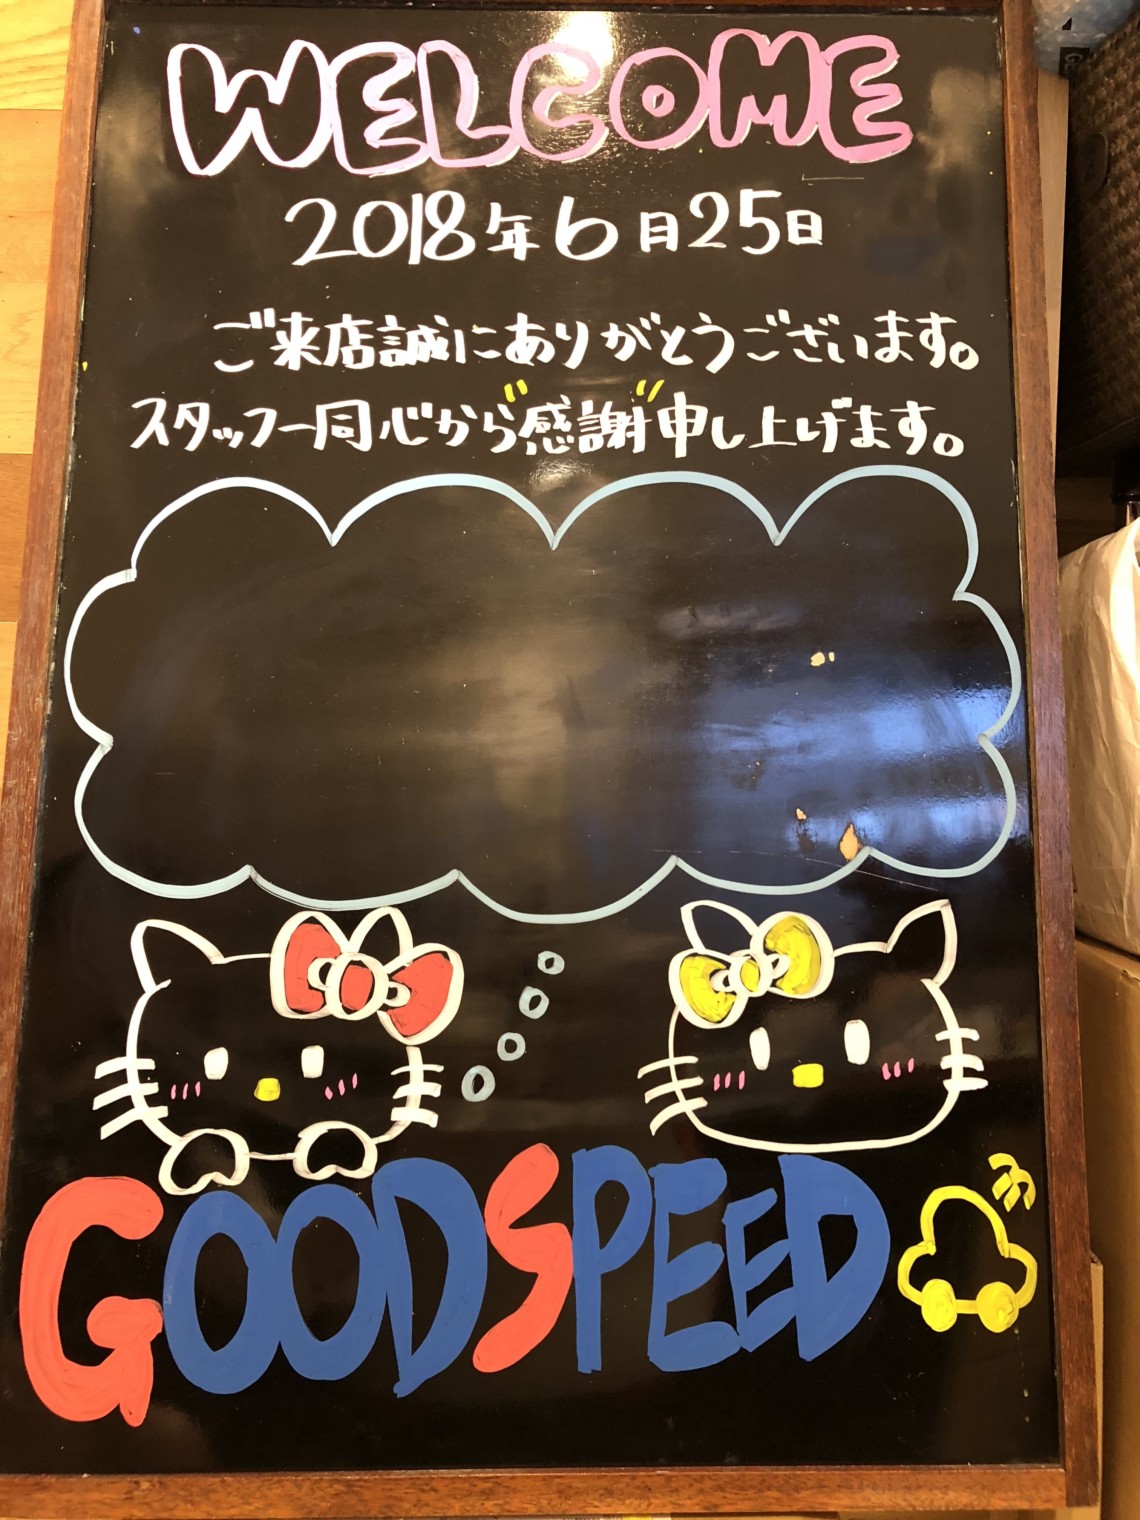 WELCOME
2018年6月25日
ご来店誠にありがとうございます。
スタッフ一同心から"感謝"申し上げます。
GOODSPEED